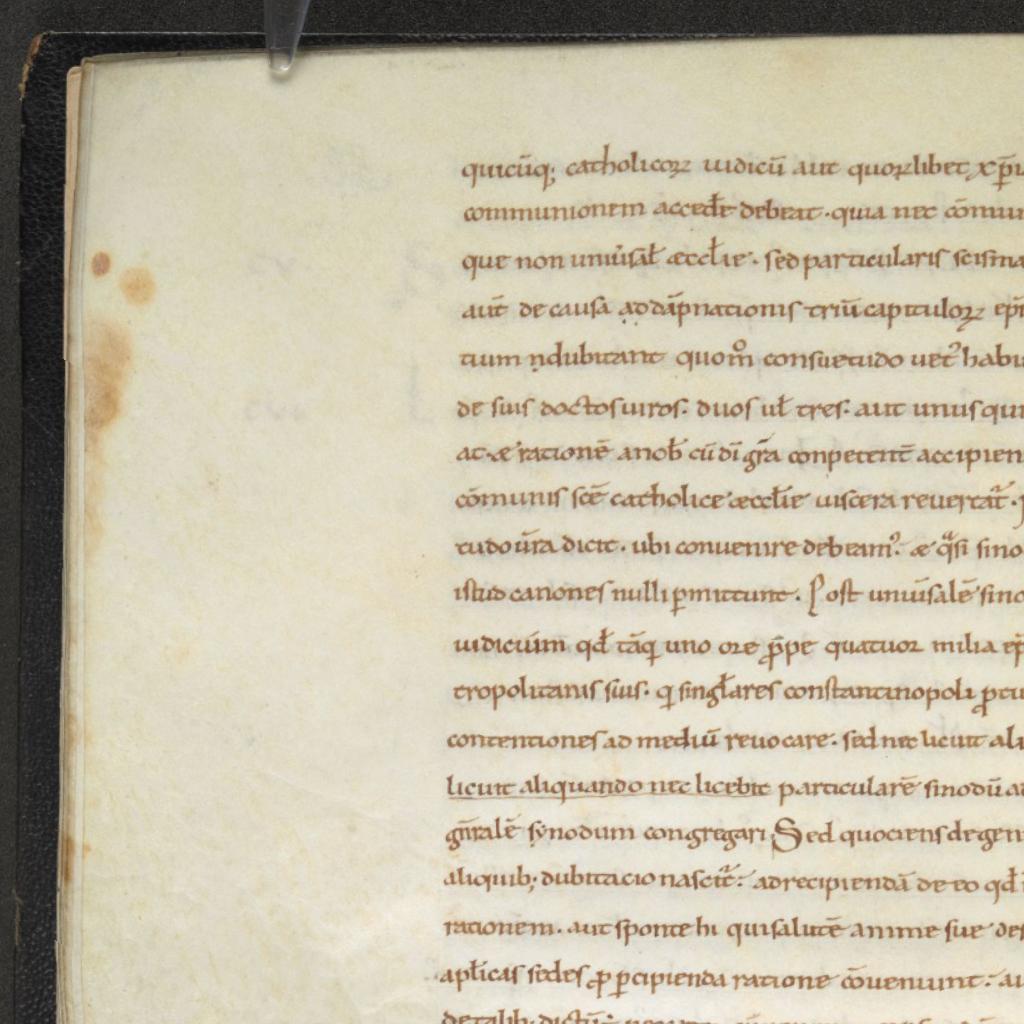 quicūq; catholicoꝝ iudicū aut quoꝝlibet xp̄i
communionem accedere debeat · quia nec cōmun
que non uniūsal ecclie · sed particularis scisma
aut̄ de causa ad dāpnationis triū capituloꝝ ep̄i
tium n dubitant quom̊ consuetudo uet̉ habu
de suis doctos uiros · duos ul tres · aut unusqui
at · & rationē a nob cū dī gr̄a conpetent̄ accipien
cōmunis scē catholice ecclie uiscera reuertat̄ ·
tudo ūra dicit · ubi convenire debeam᾽ · & q̊si sino
istud canones nulli ꝑmittunt · Post uniūsalē sino
iudicium qd tāq uno ore ꝓpe quatuor milia ep̄
tropolitanis suis · q singlares constantinopoli
contentiones ad mediū reuocare · sed nec licuit ali
licuit aliquando nec licebit particularē sinodū ad
gn̄ralē synodum congregari Sed quociens de gen
aliquib; dubitacio nascit̄ · ad recipiendā de eo qd
rationem · aut sponte hi qui salutē anime sue des
aplicas sedes ꝓ ꝑcipienda ratione cōueniunt · au
de talib; dictū